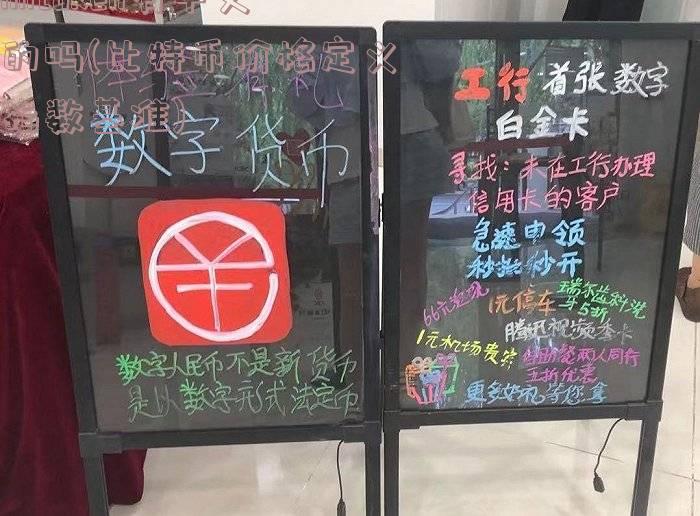 的吗(比特币价格定义
数基准)
数字货币
数字人民币不是新货币
是以数字形式法定币
工行 首张数字
白金卡
寻找:未在工行办理
信用卡的客户
急速申领
秒批秒开
66元兑现
1元停车
瑞尔齿科洗
牙5折
腾讯视频季卡
1元机场贵宾
自助餐两人同行
五折优惠
更多好礼等您拿